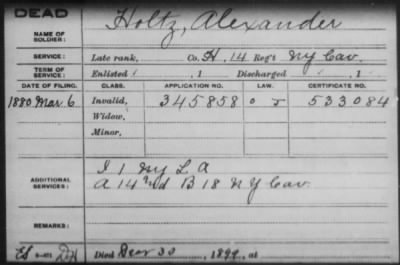 DEAD
NAME OF SOLDIER: Holtz, Alexander
SERVICE: Late rank, Co. H, 14 Reg't NY Cav.
TERM OF SERVICE: Enlisted , 1 Discharged , 1
DATE OF FILING. CLASS. APPLICATION NO. LAW. CERTIFICATE NO.
1880 Mar. 6 Invalid, 345858 533084
Widow,
Minor,
I 1 NY L A
ADDITIONAL SERVICES: A 14 & B 18 N Y Cav.
REMARKS:
Died 30, 1899, at